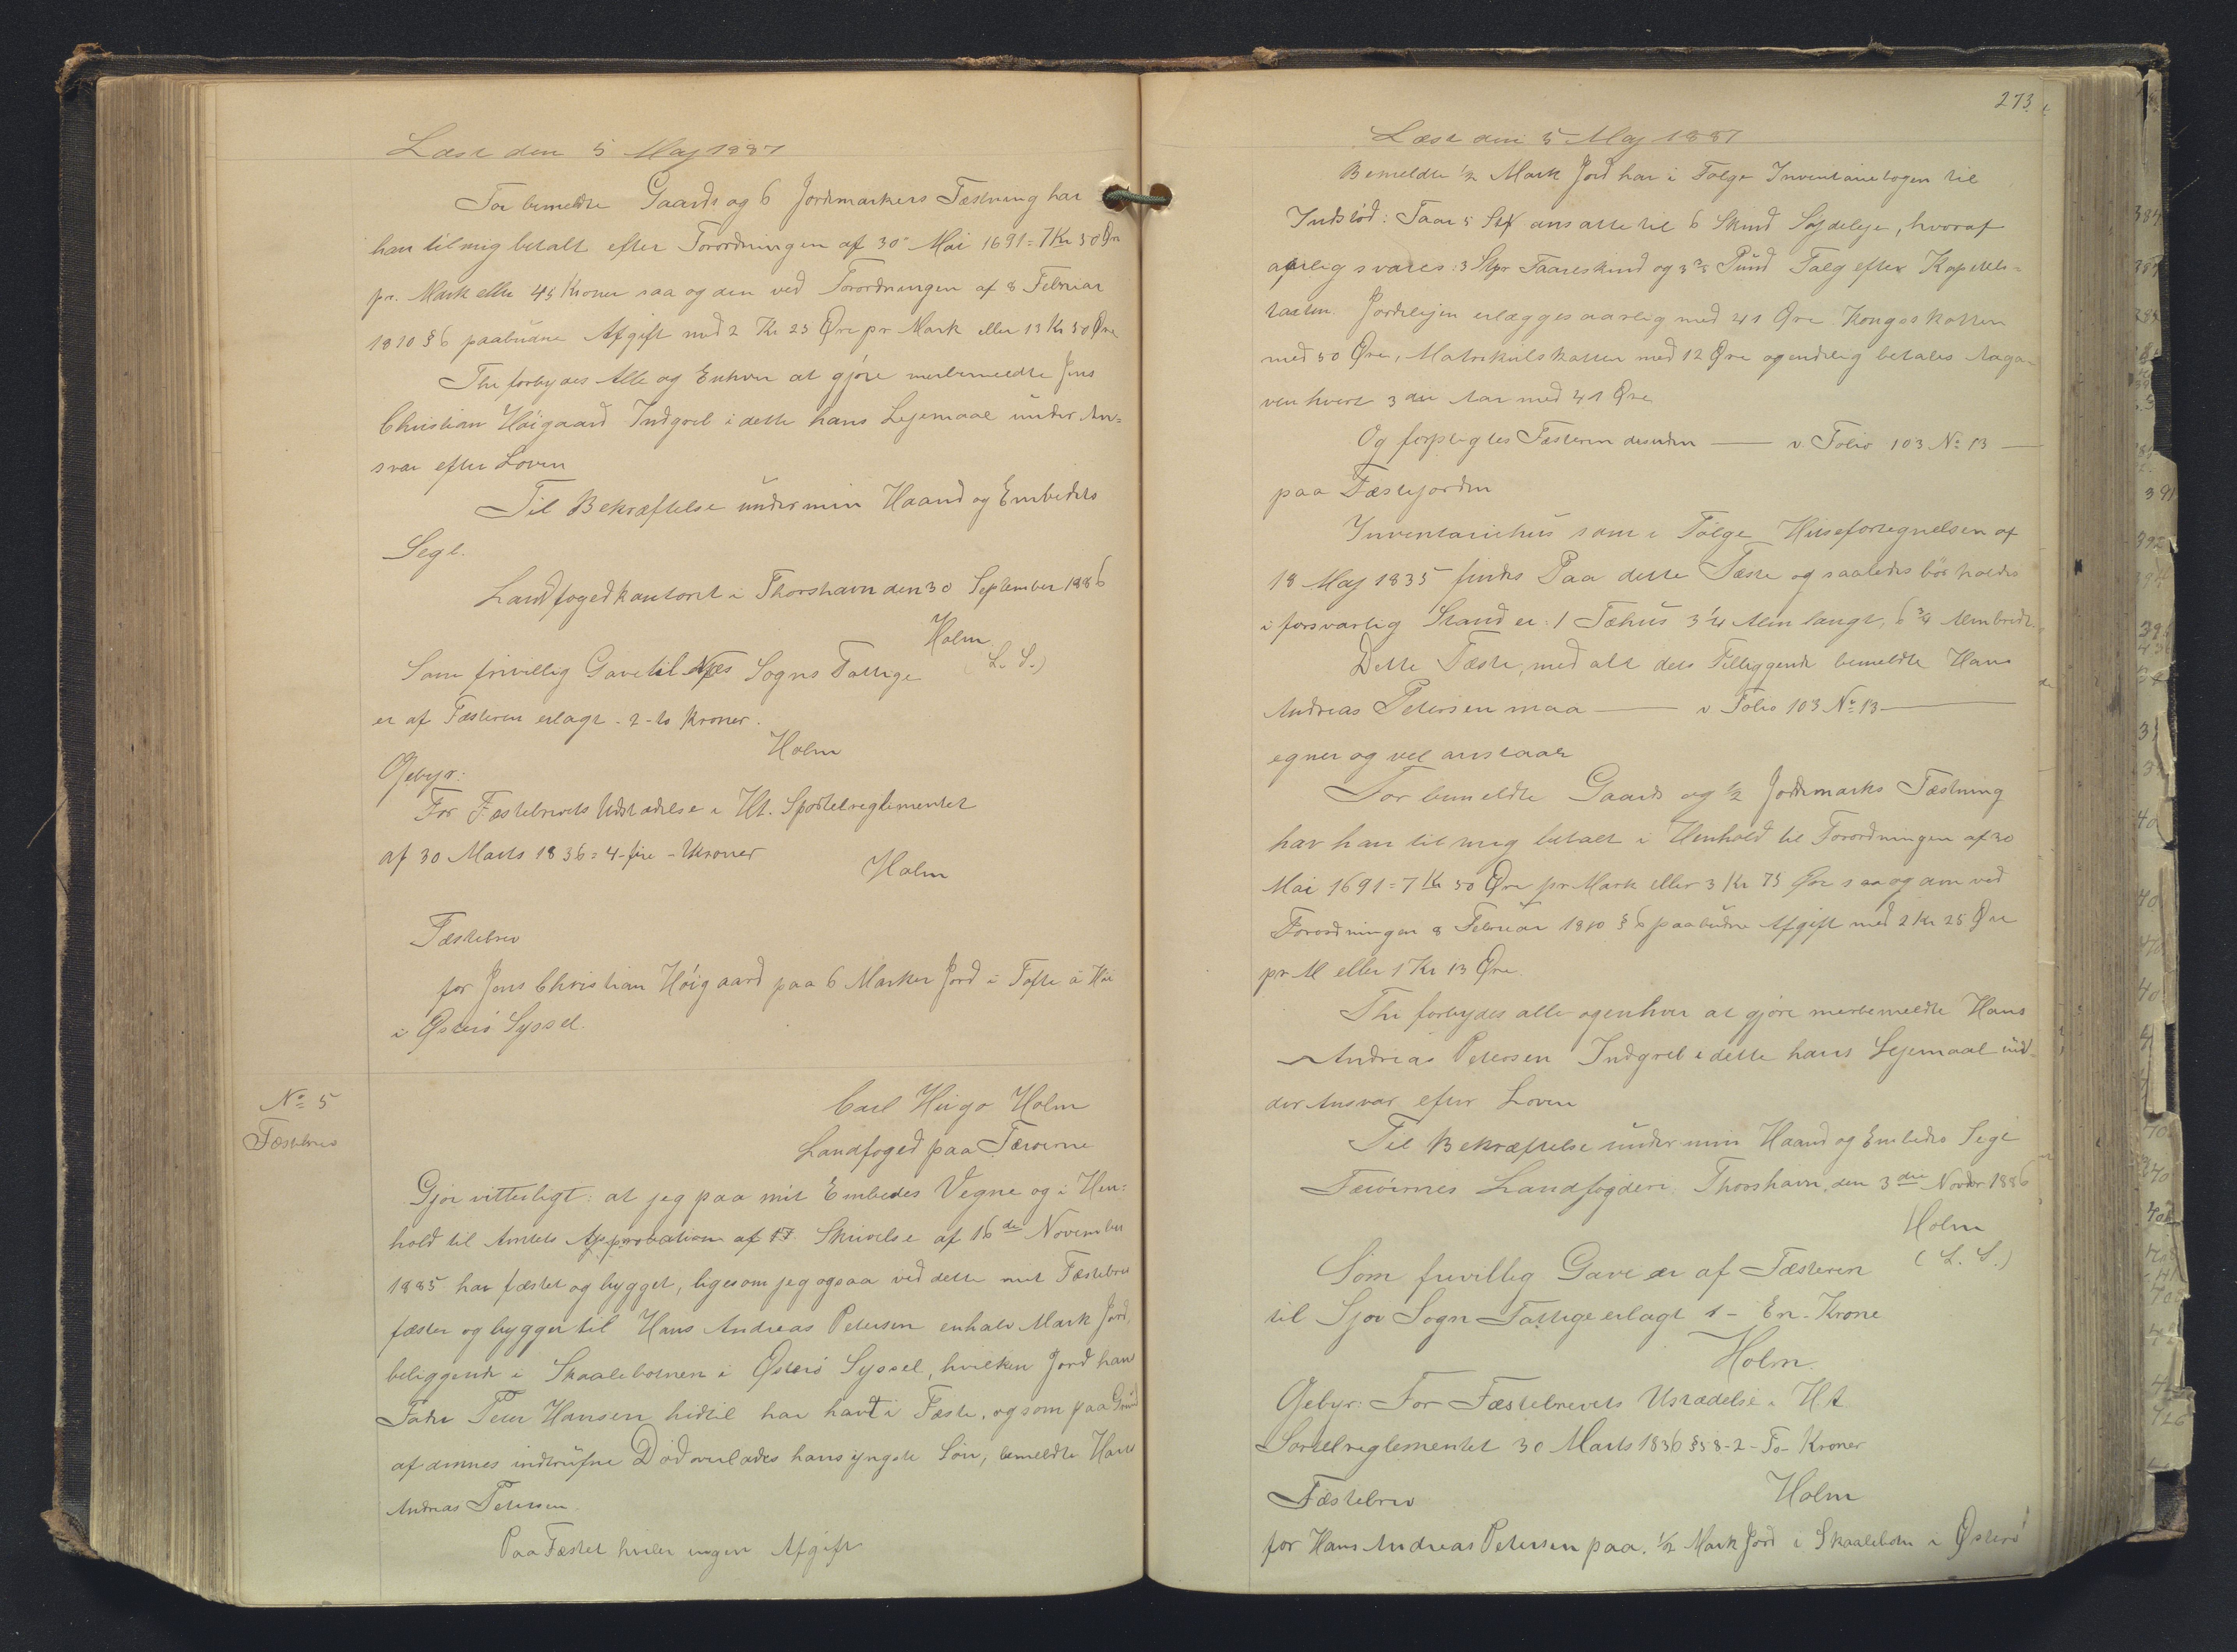 Læst den 5 Maj 1887
For bemeldte Gaards og 6 Jordmarkers Fæstning har
han til mig betalt efter Forordningen af 30 Mai 1691 = 7 Kr 50 Øre
pr. Mark eller 45 Kroner saa og den ved Forordningen af 8 Februar
1810 § 6 paabudne Afgift med 2 Kr 25 Øre pr Mark eller 13 Kr 50 Øre
Thi forbydes Alle og Enhver at gjøre merbemeldte Jens
Christian Høigaard Indgreb i dette hans Lejemaal under An=
svar efter Loven
Til Bekræftelse under min Haand og Embedets
Segl.
Landfogedkontoret i Thorshavn den 30 September 1886
Holm
(L. S.)
Som frivillig Gave til Næs Sogns Fattige
er af Fæsteren erlagt - 2 - to Kroner.
Holm
Gebyr:
For Fæstebrevets Udstædelse i Ht. Sportelreglementet
af 30 Marts 1836 = 4 - fire - Kroner
Holm
Fæstebrev
for Jens Christian Høigaard paa 6 Marker Jord i Tofte
i Østerø Syssel.
No 5
Fæstebrev
Carl Hugo Holm
Landfoged paa Færøerne
Gjør vitterligt: at jeg paa mit Embedes Vegne og i Hen=
hold til Amtets Approbation af Skrivelse af 16de November
1885 har fæstet og bygget, ligesom jeg ogsaa ved dette mit Fæstebrev
fæster og bygger til Hans Andreas Petersen en halv Mark Jord,
beliggende i Skaalebotnen i Østerø Syssel, hvilken Jord hans
Fader Peter Hansen hidtil har havt i Fæste, og som paa Grund
af dennes indtrufne Død overlades hans yngste Søn, bemeldte Hans
Andreas Petersen.
Paa Fæstet hviler ingen Afgift
273.
Læst den 5 Maj 1887
Bemeldte ½ Mark Jord har i Følge Inventariebogen til
Indstød: Faar 5 Stk ansatte til 6 Skind Søjdeleje, hvoraf
aarlig svares: 3 Stk Faareskind og 3 3/5 Pund Talg efter Kapitels=
taxten. Jordlejen erlægges aarlig med 41 Øre Kongeskatten
med 50 Øre, Matrikulskatten med 12 Øre og endelig betales Aaga=
ven hvert 3die Aar med 41 Øre
Og forpligtes Fæsteren desuden — v. Folio 103 No 13 —
paa Fæstejorden
Inventariehus som i Følge Husefortegnelsen af
18 Maj 1835 findes Paa dette Fæste og saaledes bør holdes
i forsvarlig Stand er: 1 Fæhus 3 ¼ Alen langt, 6 ¾ Alen bredt.
Dette Fæste, med alt dets Tilliggende bemeldte Hans
Andreas Petersen maa — v Folio 103 No 13 —
egner og vel anstaar
For bemeldte Gaards og ½ Jordmarks Fæstning
har han til mig betalt i Henhold til Forordningen af 30
Mai 1691 = 7 Kr 50 Øre pr Mark eller 3 Kr 75 Øre saa og den ved
Forordningen 8 Februar 1810 § 6 paabudne Afgift med 2 Kr 25 Øre
pr M eller 1 Kr 13 Øre.
Thi forbydes alle og enhver at gjøre merbemeldte Hans
Andreas Petersen Indgreb i dette hans Lejemaal un=
der Ansvar efter Loven
Til Bekræftelse under min Haand og Embedes Segl
Færøernes Landfogderi Thorshavn, den 3die Novbr 1886
Holm
(L. S.)
Som frivillig Gave er af Fæsteren
til Sjov Sogn Fattige erlagt 1 - En - Krone
Holm.
Gebyr: For Fæstebrevets Ustædelse i Ht
Sortelreglementet 30 Marts 1836 § 58 - 2 - To - Kroner
Holm
Fæstebrev
for Hans Andreas Petersen paa. ½ Mark Jord i Skaalebotn i Østerø